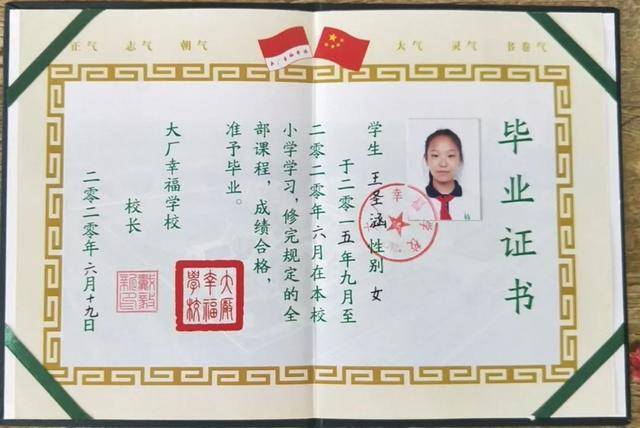 正气 志气 朝气
大气 灵气 书卷气
毕业证书
学生 王圣涵 性别 女
于二〇一五年九月至
二〇二〇年六月在本校
小学学习，修完规定的全
部课程，成绩合格，
准予毕业。
大厂幸福学校
校长
二〇二〇年六月十九日
大厰幸福學校